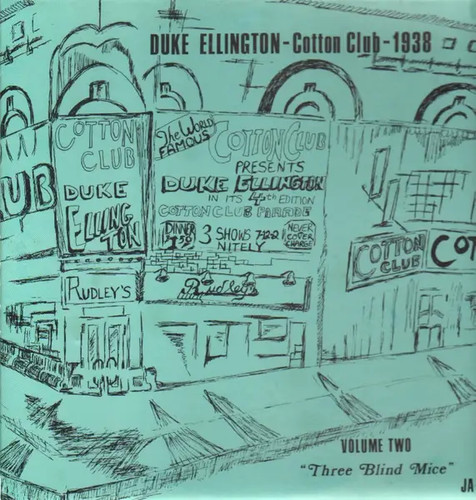 DUKE ELLINGTON - Cotton Club - 1938
COTTON
CLUB
DUKE
ELLING
TON
RUDLEY'S
The WORLD
FAMOUS
COTTON CLUB
PRESENTS
DUKE ELLINGTON
IN ITS 4th EDITION
COTTON CLUB PARADE
DINNER
3 SHOWS 7-12-2
NITELY
NEVER
COVER
CHARGE
Rudley's
UB
COTTON
CLUB
COT
VOLUME TWO
"Three Blind Mice"
JA